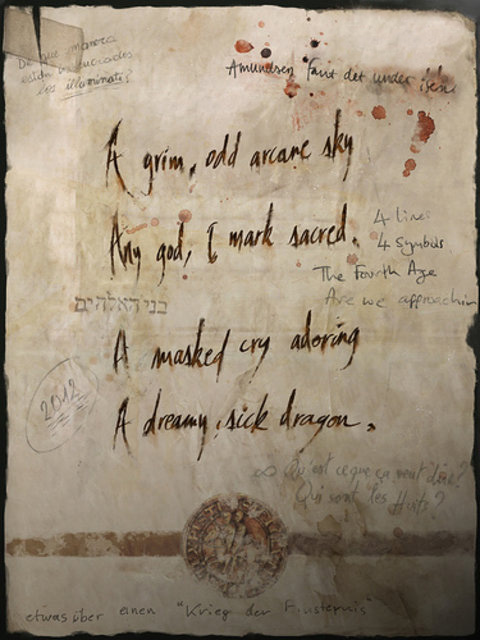 De que manera
están involucrados
los illuminati?
Amundsen fant det under isen
A grim, odd arcane sky
Any god, I mark sacred.
4 lines
4 symbols
The Fourth Age
Are we approachin
בני האלהים
A masked cry adoring
A dreamy, sick dragon.
2012
∞ Qu'est ce que ça veut dire?
Qui sont les
etwas über einen "Krieg der Finsternis"